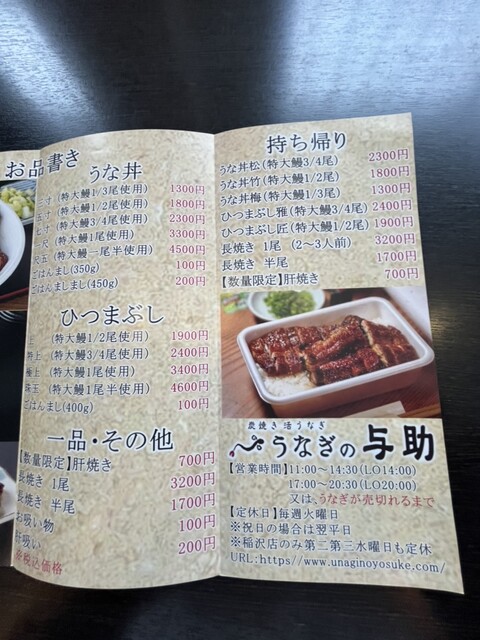 お品書き
うな丼
三寸 (特大鰻1/3尾使用) 1300円
五寸 (特大鰻1/2尾使用) 1800円
七寸 (特大鰻3/4尾使用) 2300円
一尺 (特大鰻1尾使用) 3300円
尺五 (特大鰻一尾半使用) 4500円
ごはんまし(350g) 100円
ごはんましまし(450g) 200円
ひつまぶし
上 (特大鰻1/2尾使用) 1900円
特上 (特大鰻3/4尾使用) 2400円
極上 (特大鰻1尾使用) 3400円
珠玉 (特大鰻1尾半使用) 4600円
ごはんまし(400g) 100円
一品・その他
【数量限定】肝焼き 700円
長焼き 1尾 3200円
長焼き 半尾 1700円
お吸い物 100円
肝吸い 200円
※税込価格
持ち帰り
うな丼松(特大鰻3/4尾) 2300円
うな丼竹(特大鰻1/2尾) 1800円
うな丼梅(特大鰻1/3尾) 1300円
ひつまぶし雅(特大鰻3/4尾) 2400円
ひつまぶし匠(特大鰻1/2尾) 1900円
長焼き 1尾 (2〜3人前) 3200円
長焼き 半尾 1700円
【数量限定】肝焼き 700円
炭焼き活うなぎ
うなぎの与助
【営業時間】11:00〜14:30(LO14:00)
17:00〜20:30(LO20:00)
又は、うなぎが売切れるまで
【定休日】毎週火曜日
※祝日の場合は翌平日
※稲沢店のみ第二第三水曜日も定休
URL:https//www.unaginoyosuke.com/